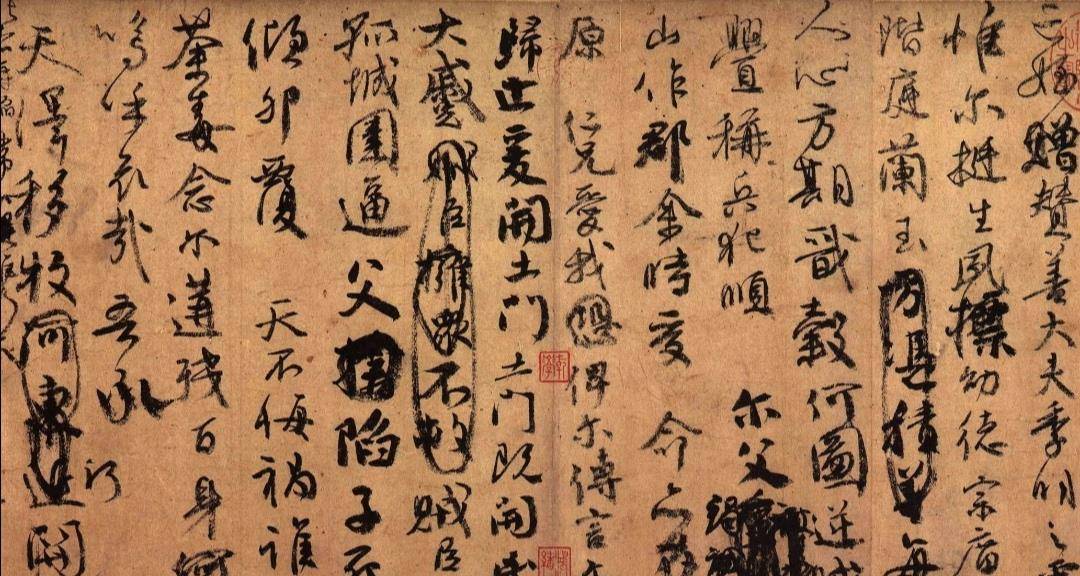 侄贈贊善大夫季明之
惟尔挺生夙標幼德宗廟
階庭蘭玉方憑積善每
人心方期戩穀何圖逆賊
釁稱兵犯順 尔父
山作郡余時受 命亦在
原 仁兄愛我恐俾尔傳言
歸止爰開土門土門既開
大蹙賊臣擁衆不救賊臣
孤城圍逼父陷子死
傾卵覆 天不悔禍誰
荼毒念尔遘殘百身何
嗚呼哀哉吾承
天澤移牧河東近關